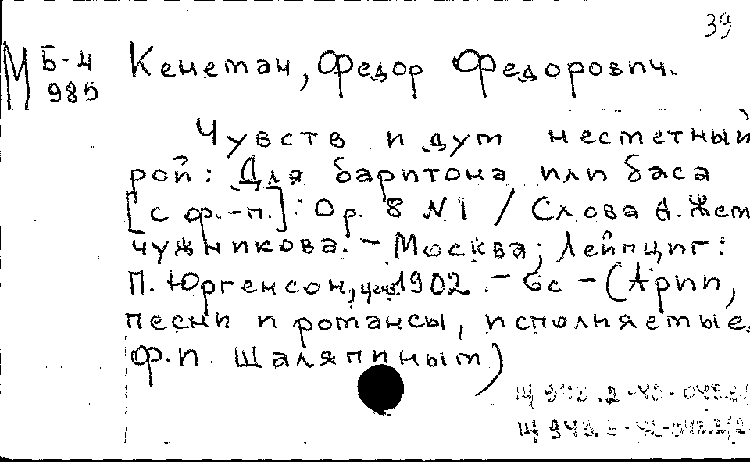 39
М Б-4 Кенеман, Федор Федорович.
985
Чувств и дум несметный
рой: Для баритона или баса
[с ф.-п.]: Op. 8 N1 / Слова А. Жем
чужникова. - Москва; Лейпциг:
П. Юргенсон, ценз. 1902. - 6с - (Арии,
песни и романсы, исполняемые
Ф.И. Шаляпиным)